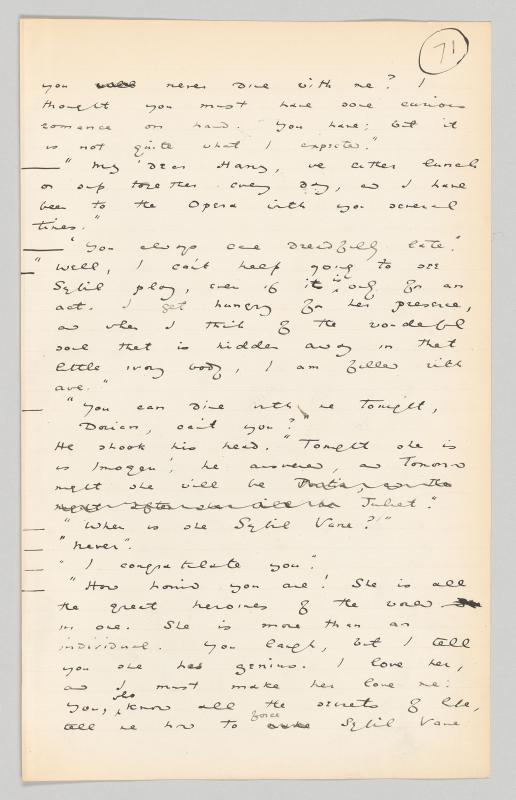 71
you will never dine with me? I
thought you must have some curious
romance on hand. You have; but it
is not quite what I expected."
"My dear Harry, we either lunch
or sup together every day, and I have
been to the Opera with you several
times."
"You always came dreadfully late."
"Well, I can't help going to see
Sybil play, even if it is only for an
act. I get hungry for her presence,
and when I think of the wonderful
soul that is hidden away in that
little ivory body, I am filled with
awe."
"You can dine with me tonight,
Dorian, can't you?"
He shook his head. "Tonight she is
is Imogen', he answered, and Tomorrow
night she will be Portia, and the
night after she will be Juliet."
"When is she Sybil Vane?"
"Never".
"I congratulate you".
"How horrid you are! She is all
the great heroines of the world
in one. She is more than an
individual. You laugh, but I tell
you she has genius. I love her,
and I must make her love me:
You, who know all the secrets of life,
tell me how to force make Sybil Vane